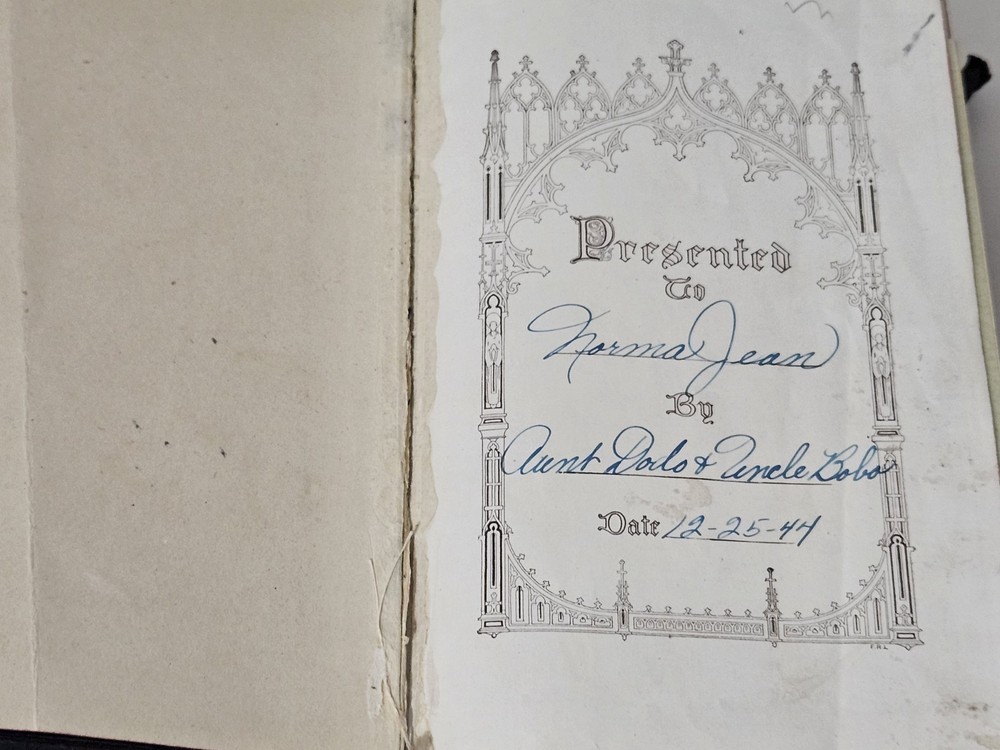 Presented
To
Norma Jean
By
Aunt Dodo & Uncle Bobo
Date 12-25-44